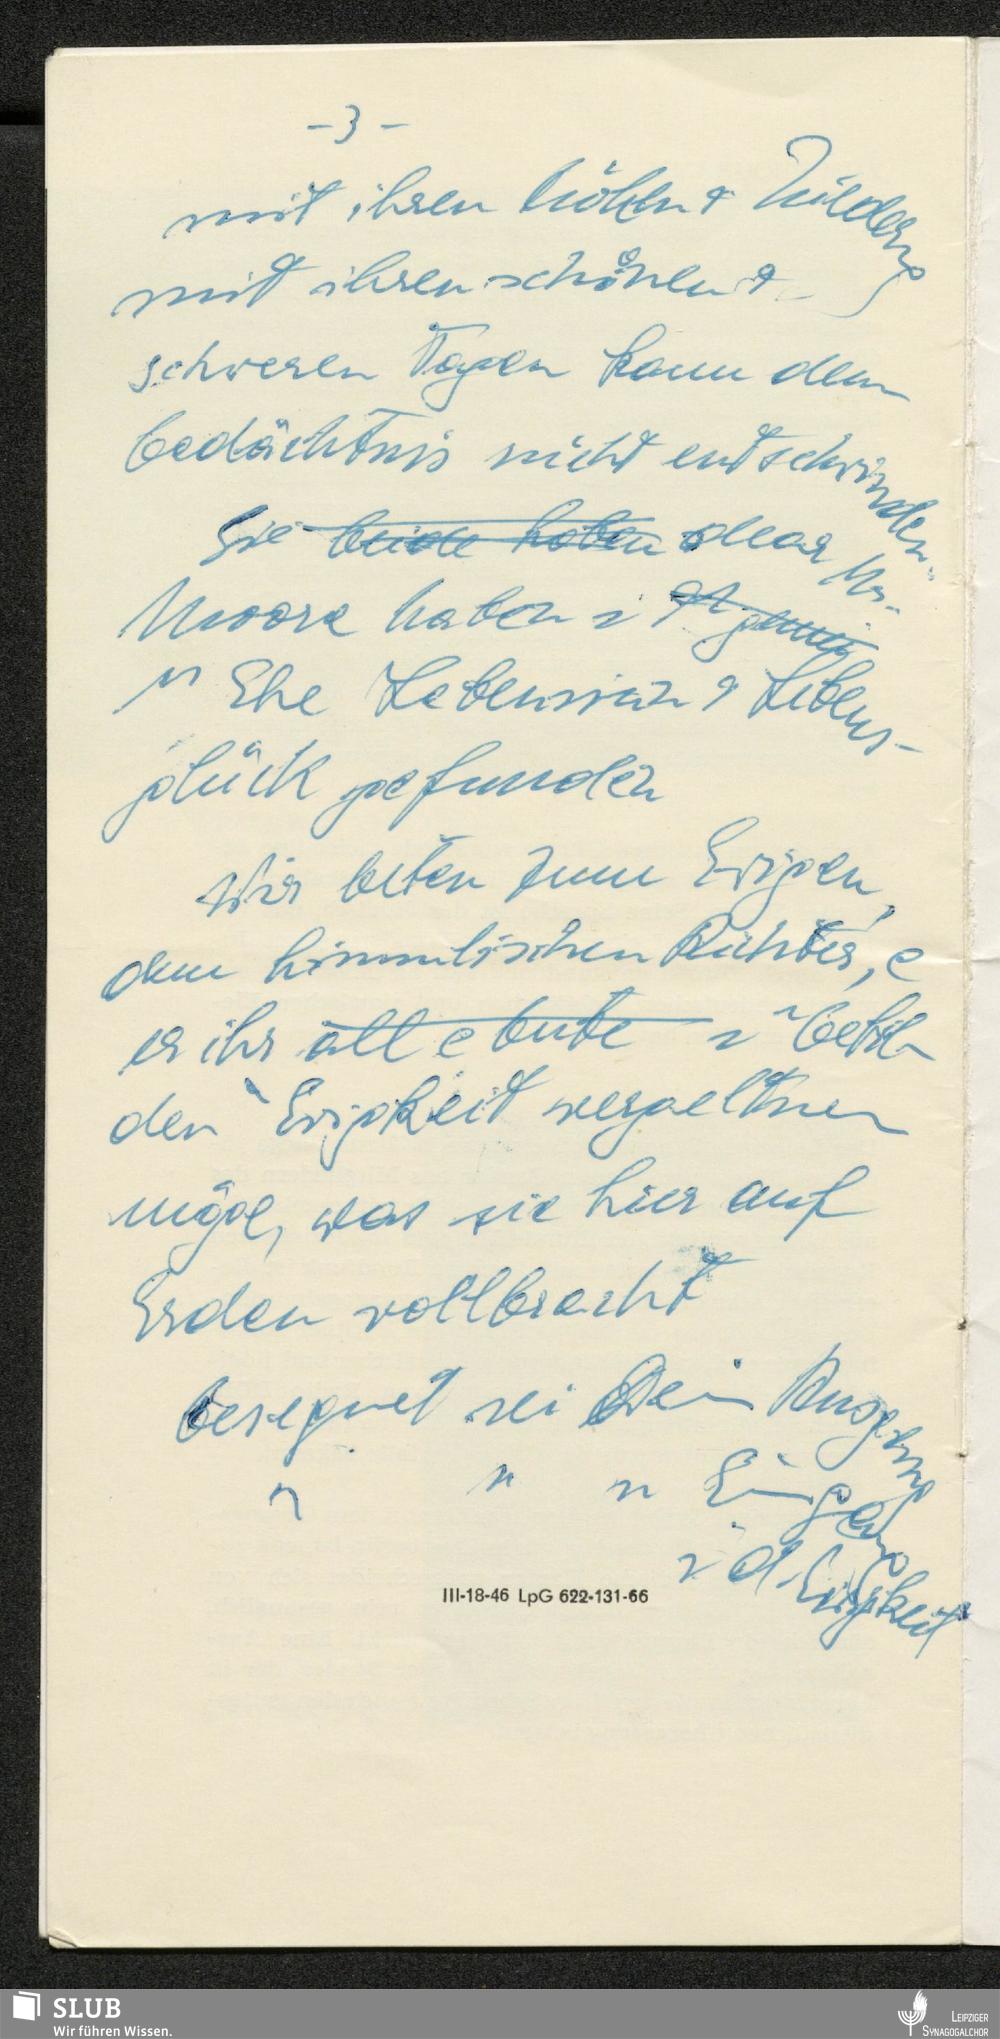 - 3 -
mit ihren Höhen +
mit ihren schönen +
schweren Tagen kann dem
Gedächtnis nicht entschwinden.
Sie beide haben dear Mr.
Moore haben i
Ehe Lebenssinn + Lebens-
glück gefunden
Wir beten zum Ewigen,
dem himmlischen Richter,
er ihr alle Gute i
den Ewigkeit vergelten
möge, was sie hier auf
Erden vollbracht
Gesegnet sei Dein Ausgang
" " " Eingang
i d. Ewigkeit
III-18-46 LpG 622-131-66
SLUB
Wir führen Wissen.
LEIPZIGER
SYNAGOGALCHOR